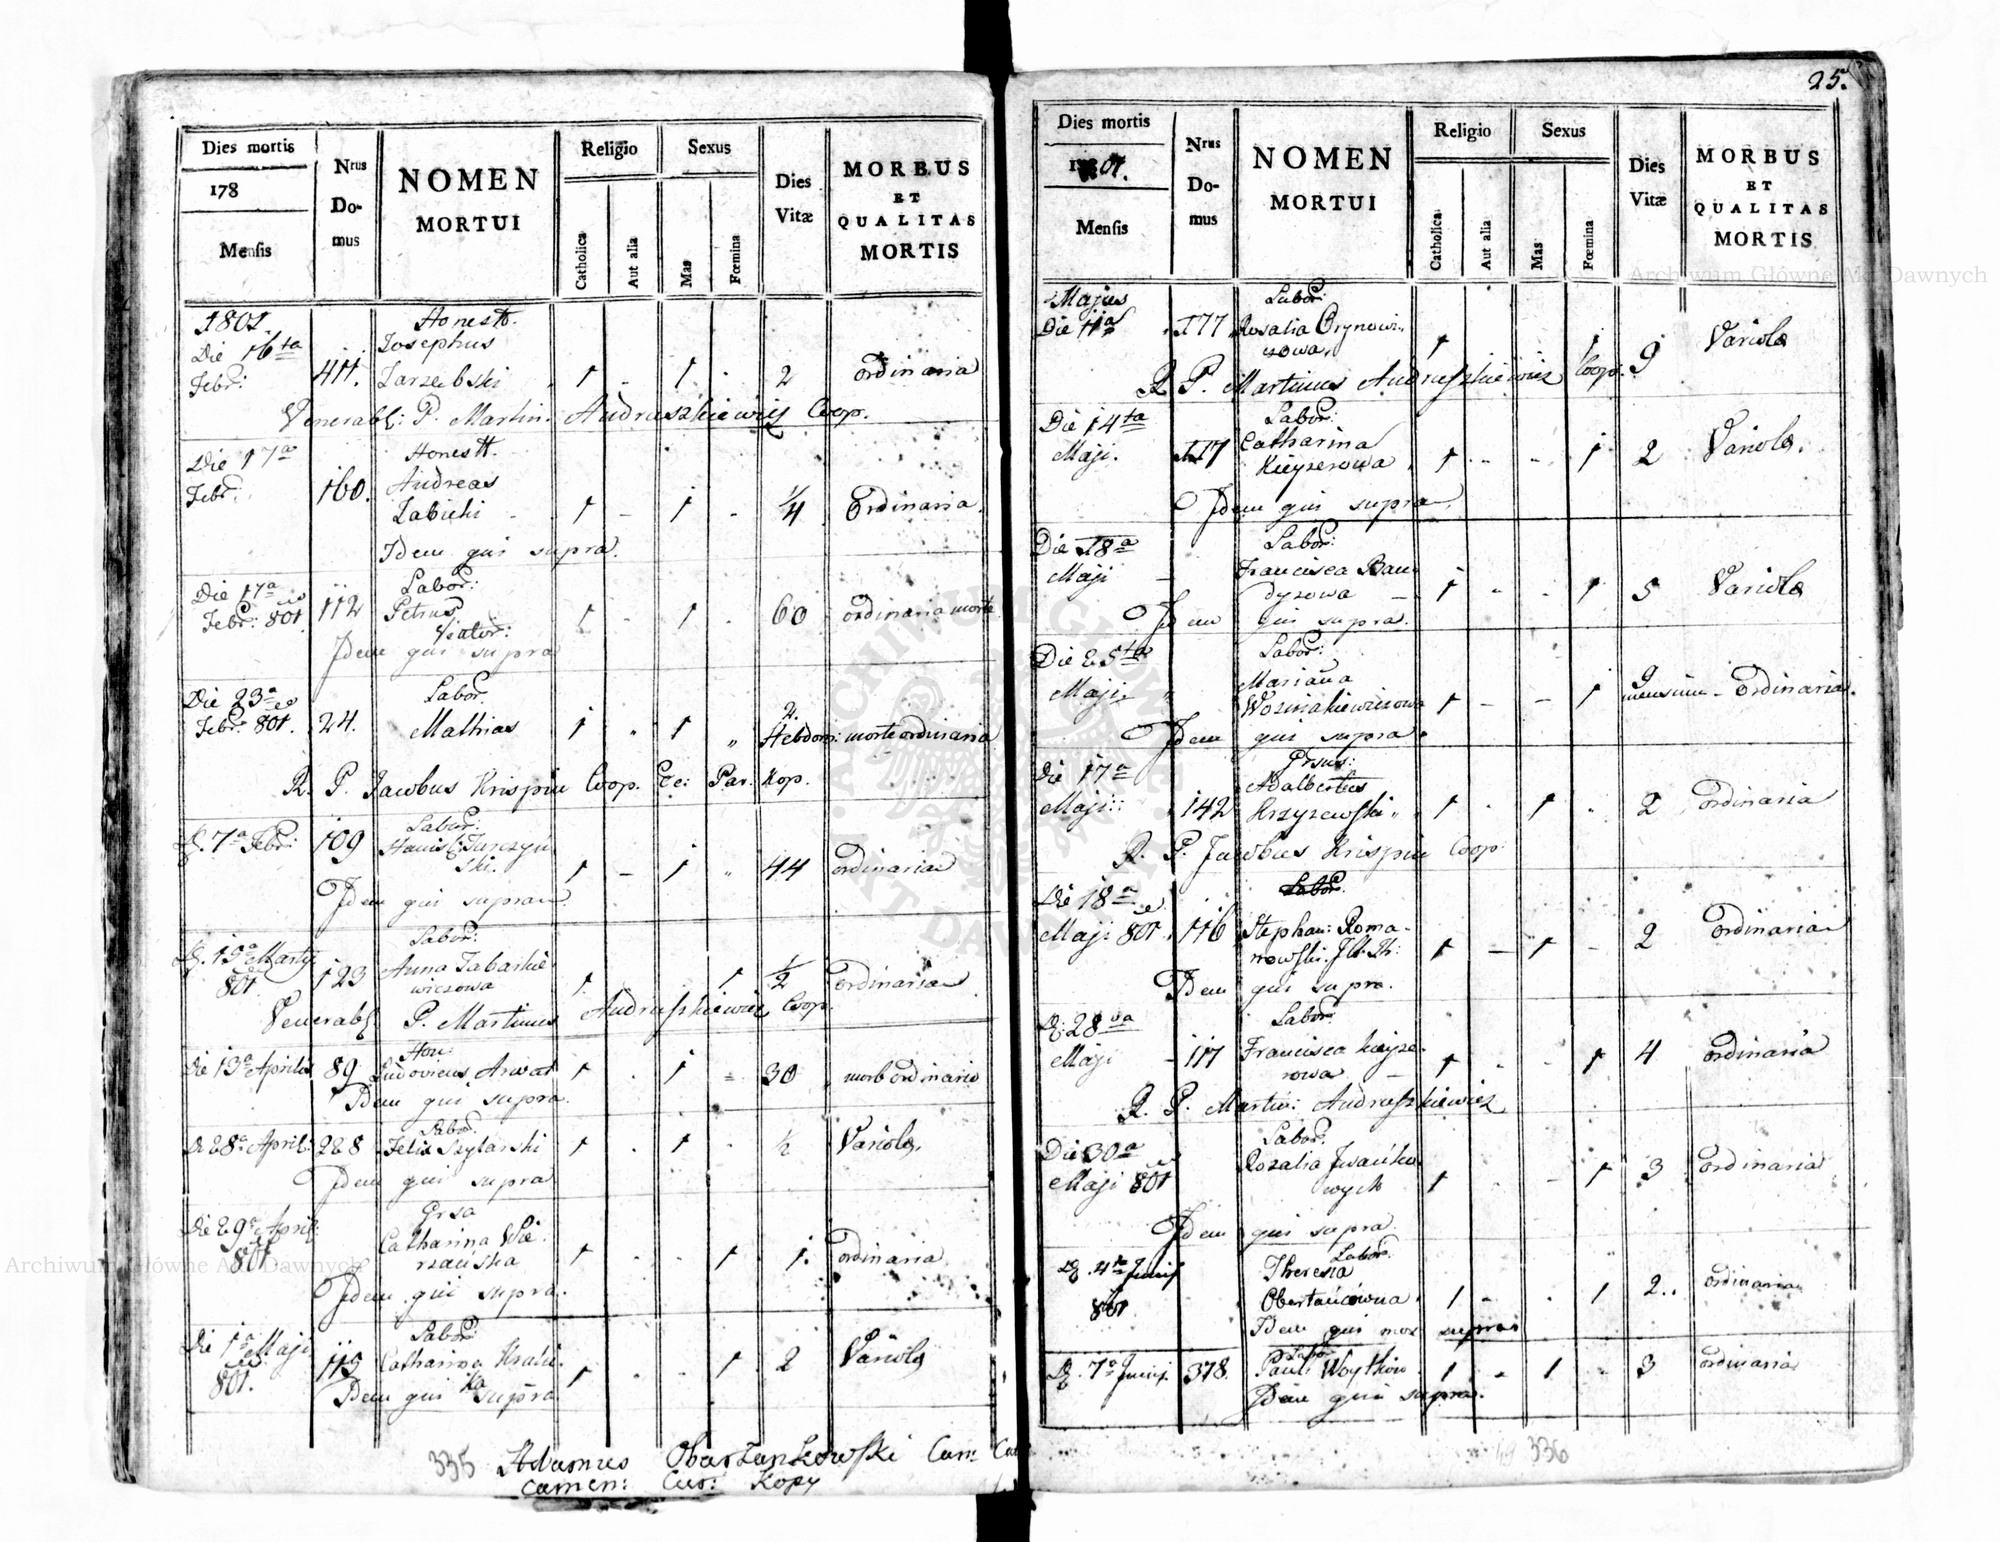 Dies mortis
178
Mensis
Nrus Domus
NOMEN
MORTUI
Religio
Catholica
Aut alia
Sexus
Mas
Fœmina
Dies
Vitæ
MORBUS
ET
QUALITAS
MORTIS
1801.
Die 16ta Febr: 411. Honestt. Josephus Jarzebski 1 - 1 - 2 ordinaria
Venerabl: P. Martin: Andruszkiewicz Coop.
Die 17a Febr: 160. Honestt. Andreas Zabicki 1 - 1 - 1/4 Ordinaria.
Idem qui supra.
Die 17a Febr: 801 112 Labor: Petrus Viator: 1 - 1 - 60 ordinaria morte
Idem qui supra
Die 23a Febr: 801. 24. Labor. Mathias 1 - 1 „ 2. Hebdom: morte ordinaria
R. P. Jacobus Krispin Coop. Ec: Par: Kop.
D. 7a Febr: 109 Labor: Stanisl: Turczynski. 1 - 1 „ 44 ordinaria
Idem qui supra.
D. 19a Martij 801 123 Labor: Anna Tabaskiewiczowa 1 1 1/2 ordinaria
Venerabl. P. Martinus Andruszkiewicz Coop.
Die 13a Aprilis 89 Hon: Ludovicus Arwat 1 - 1 - 30 morb ordinario
Idem qui supra.
D 28a April: 228 Labor. Felix Szylarski 1 - 1 - 1/2 Variola.
Idem qui supra
Die 29a April: 801 Grsa Catharina Wierzańska 1 - - 1 1. ordinaria
Idem qui supra.
Die 1a Maji 801. 113 Labor: Catharina Kralicka 1 - - 1 2 Variola
Idem qui supra
335 Adamus Obarzankowski
Camen: Cur: Kopy
25.
Dies mortis
1801.
Mensis
Nrus Domus
NOMEN
MORTUI
Religio
Catholica
Aut alia
Sexus
Mas
Fœmina
Dies
Vitæ
MORBUS
ET
QUALITAS
MORTIS
Majus
Die 11a 177 Labor: Rosalia Brynowiczowa. 1 1 9 Variola
R. P. Martinus Andruszkiewicz Coop.
Die 14ta Maji. 117 Labor: Catharina Kieyzerowa 1 - - 1 2 Variola.
Idem qui supra.
Die 18a Maji Labor: Francisca Bandyzowa 1 - - 1 5 Variola
Idem qui supra.
Die 25ta Maji. Labor: Mariana Wozinakiewiczowa 1 - - 1 9 mensium - Ordinaria.
Idem qui supra.
Die 17a Maji: 142 Grsus: Adalbertus Krzyzewski 1 - 1 - 2 ordinaria
R. P. Jacobus Krispin Coop
Die 18a Maji 801 116 Stephan: Romanowski 1 - 1 - 2 Ordinaria
Idem qui supra.
D. 28va Maji 117 Labor: Francisca Kieyzerowa 1 - - 1 4 ordinaria
R. P. Martin: Andruszkiewicz
Die 30a Maji 801 Labor. Rozalia Iwańkowych 1 - - 1 3 ordinaria
Idem qui supra.
D. 4ta Junij 801 Labor. Theresia Obertancówna 1 - - 1 2.. ordinaria
Idem qui mox supra
D. 7a Junij. 378. Labor Paul: Woytków 1 - 1 - 3 ordinaria
Idem qui supra.
336
Archiwum Główne Akt Dawnych
Archiwum Główne Akt Dawnych
ARCHIWUM GŁÓWNE AKT DAWNYCH